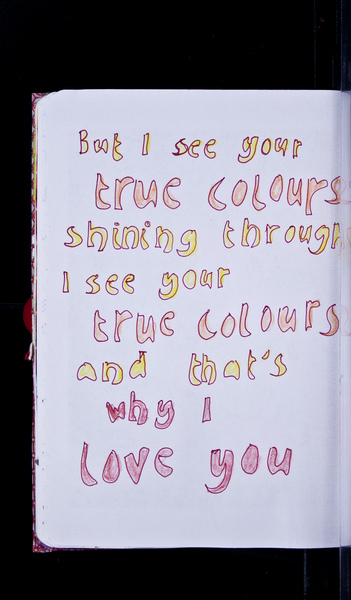 But I see your
true colours
shining through
I see your
true colours
and that's
why I
love you